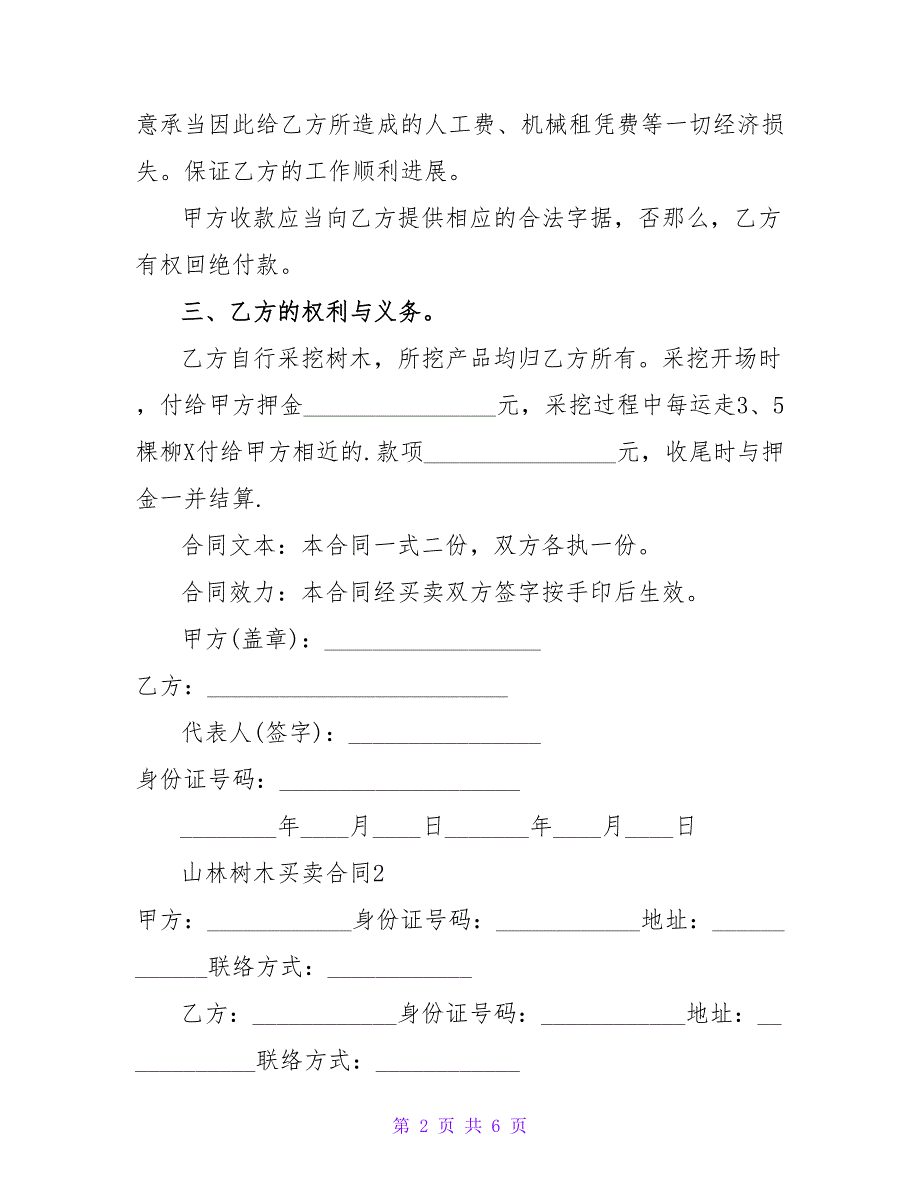 意承当因此给乙方所造成的人工费、机械租凭费等一切经济损
失。保证乙方的工作顺利进展。
甲方收款应当向乙方提供相应的合法字据，否那么，乙方
有权回绝付款。
三、乙方的权利与义务。
乙方自行采挖树木，所挖产品均归乙方所有。采挖开场时
，付给甲方押金________________元，采挖过程中每运走3、5
棵柳X付给甲方相近的.款项________________元，收尾时与押
金一并结算.
合同文本：本合同一式二份，双方各执一份。
合同效力：本合同经买卖双方签字按手印后生效。
甲方(盖章)：__________________
乙方：_________________________
代表人(签字)：________________
身份证号码：____________________
________年____月____日_______年____月____日
山林树木买卖合同2
甲方：____________身份证号码：____________地址：______
______联络方式：____________
乙方：____________身份证号码：____________地址：__
__________联络方式：____________
第 2 页 共 6 页